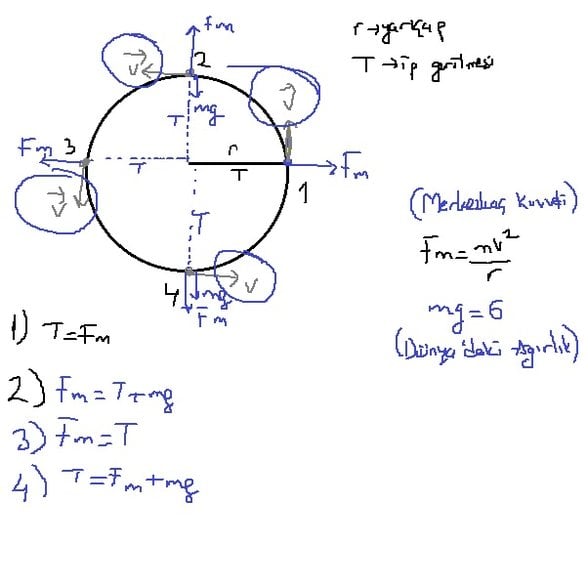 fm
2
r→yarıçap
T→ip gerilmesi
V
V
T
mg
r
T
Fm
3
T
Fm
1
V
T
4
mg
V
Fm
(Merkezkaç kuvveti)
Fm=mv²/r
mg=G
(Dünya'daki Ağırlık)
1) T=Fm
2) Fm=T+mg
3) Fm=T
4) T=Fm+mg